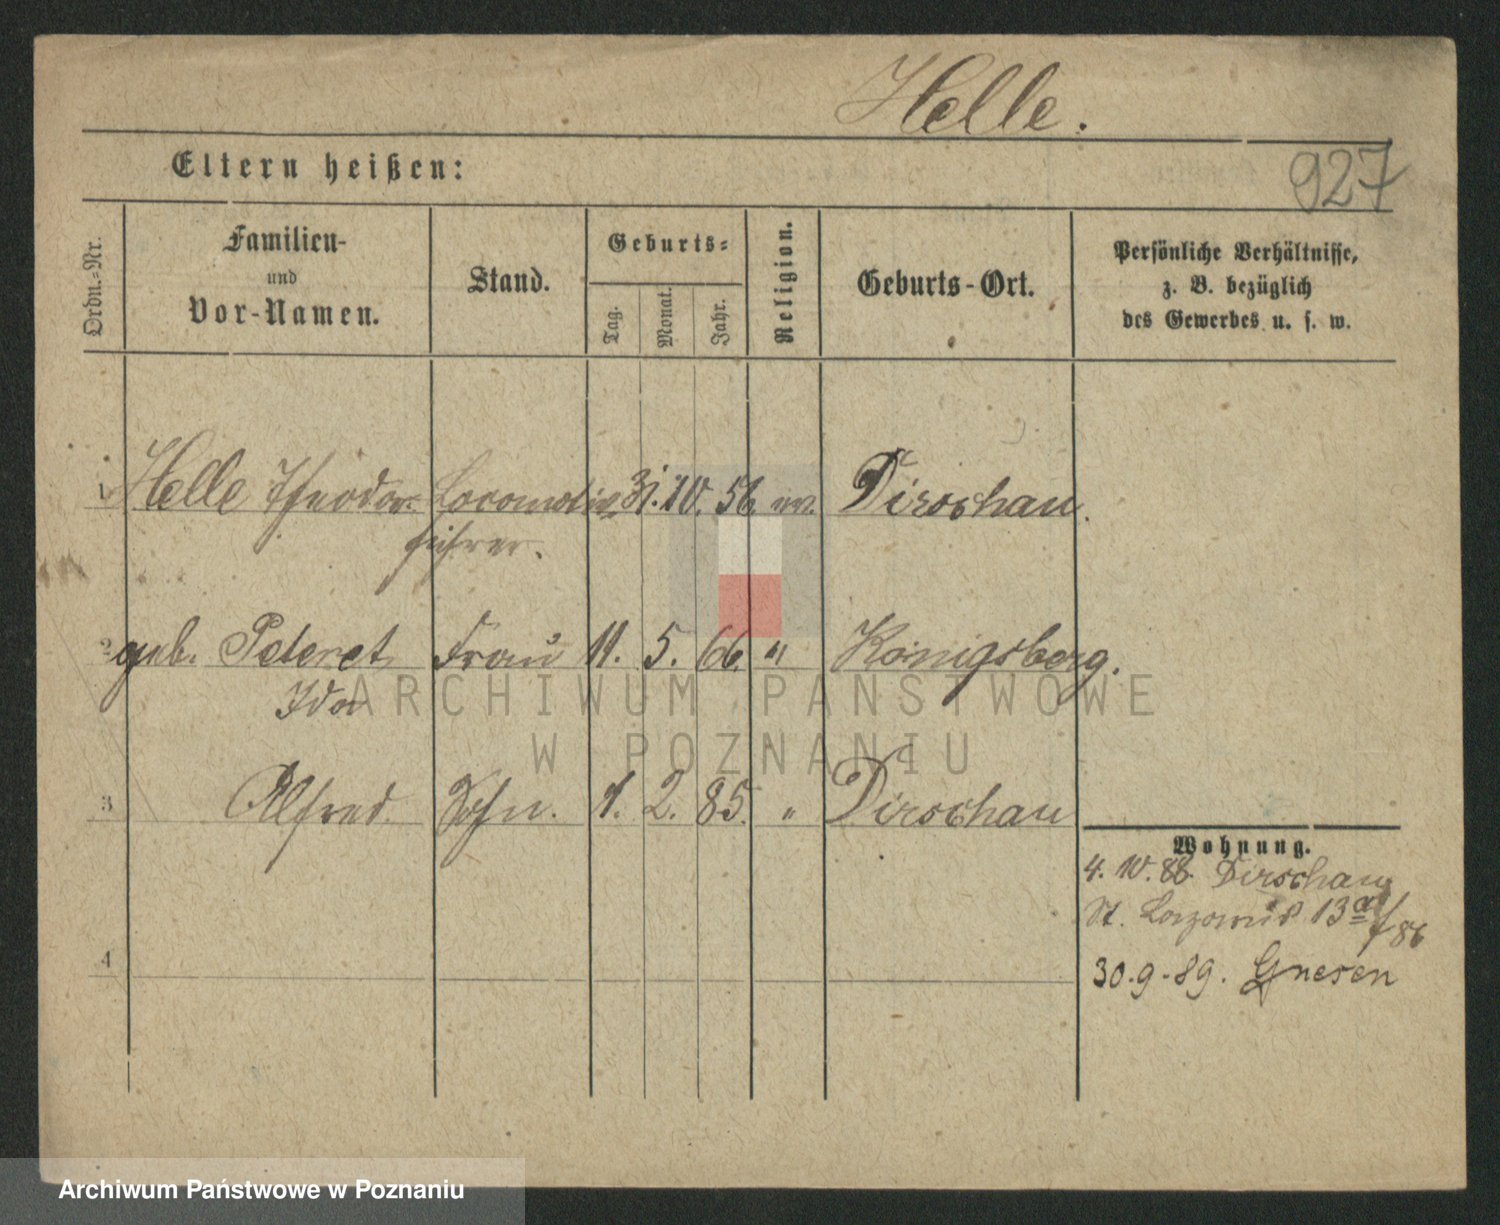 Helle.
Eltern heißen:
927
Ordn.-Nr.
Familien-
und
Vor-Namen.
Stand.
Geburts-
Tag.
Monat.
Jahr.
Religion.
Geburts-Ort.
Persönliche Verhältnisse,
z. B. bezüglich
des Gewerbes u. s. w.
1 Helle Theodor Locomotiv 31. 10. 56. ev. Dirschau.
führer.
2 geb. Peteret Frau 11. 5. 66. " Königsberg.
Ida
ARCHIWUM PAŃSTWOWE
W POZNANIU
3 Alfred Sohn. 1. 2. 85. " Dirschau
Wohnung.
4. 10. 86 Dirschau
St. Lazarus 13a f/86
4
30.9.89. Gnesen
Archiwum Państwowe w Poznaniu